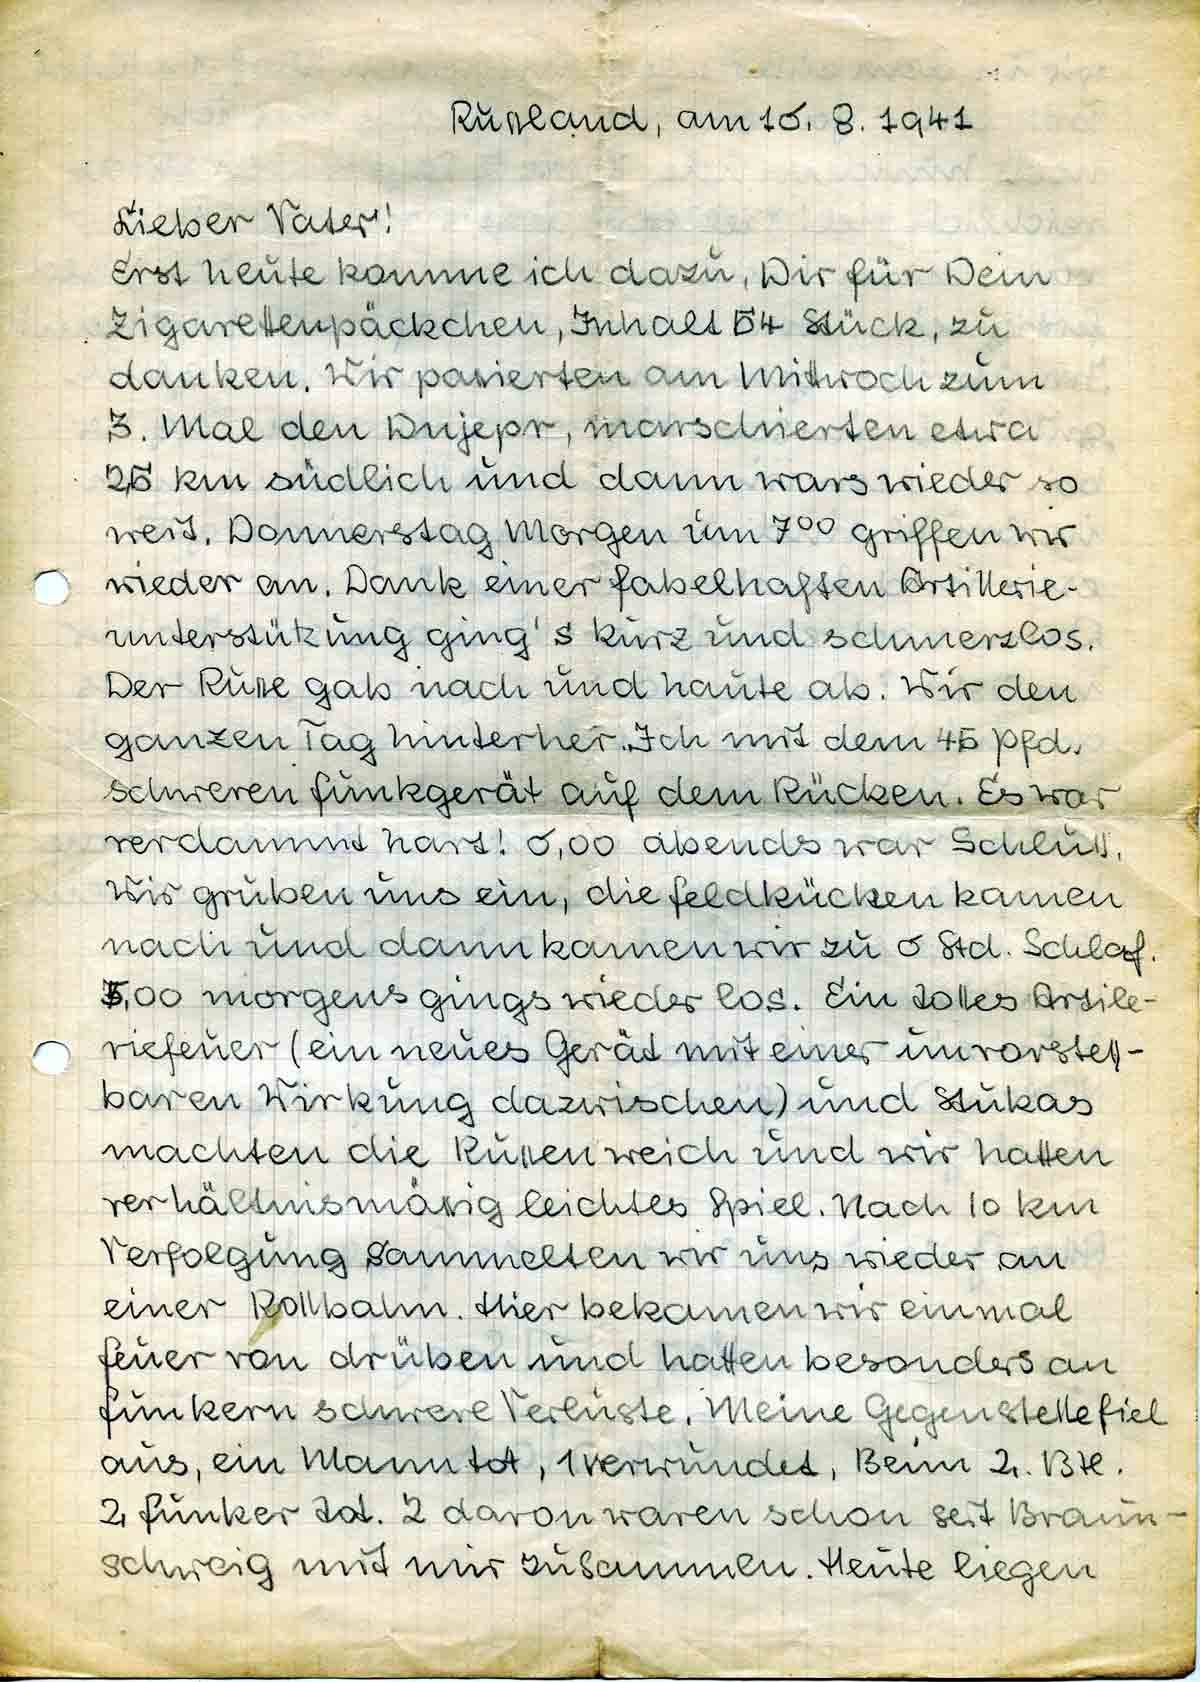 Rußland, am 16. 8. 1941
Lieber Vater!
Erst heute komme ich dazu, Dir für Dein
Zigarettenpäckchen, Inhalt 54 Stück, zu
danken. Wir passierten am Mittwoch zum
3. Mal den Dnjepr, marschierten etwa
25 km südlich und dann wars wieder so
weit. Donnerstag Morgen um 7⁰⁰ griffen wir
wieder an. Dank einer fabelhaften Artillerie-
unterstützung ging's kurz und schmerzlos.
Der Russe gab nach und haute ab. Wir den
ganzen Tag hinterher. Ich mit dem 45 Pfd.
schweren Funkgerät auf dem Rücken. Es war
verdammt hart! 6,00 abends war Schluß.
Wir gruben uns ein, die Feldkücken kamen
nach und dann kamen wir zu 6 Std. Schlaf.
5,00 morgens gings wieder los. Ein tolles Artile-
riefeuer (ein neues Gerät mit einer unvorstell-
baren Wirkung dazwischen) und Stukas
machten die Russen weich und wir hatten
verhältnismässig leichtes Spiel. Nach 10 km
Verfolgung sammelten wir uns wieder an
einer Rollbahn. Hier bekamen wir einmal
Feuer von drüben und hatten besonders an
Funkern schwere Verluste. Meine Gegenstelle fiel
aus, ein Mann tot, 1 verwundet, Beim 2. Btl.
2 Funker tot. 2 davon waren schon seit Braun-
schweig mit mir zusammen. Heute liegen